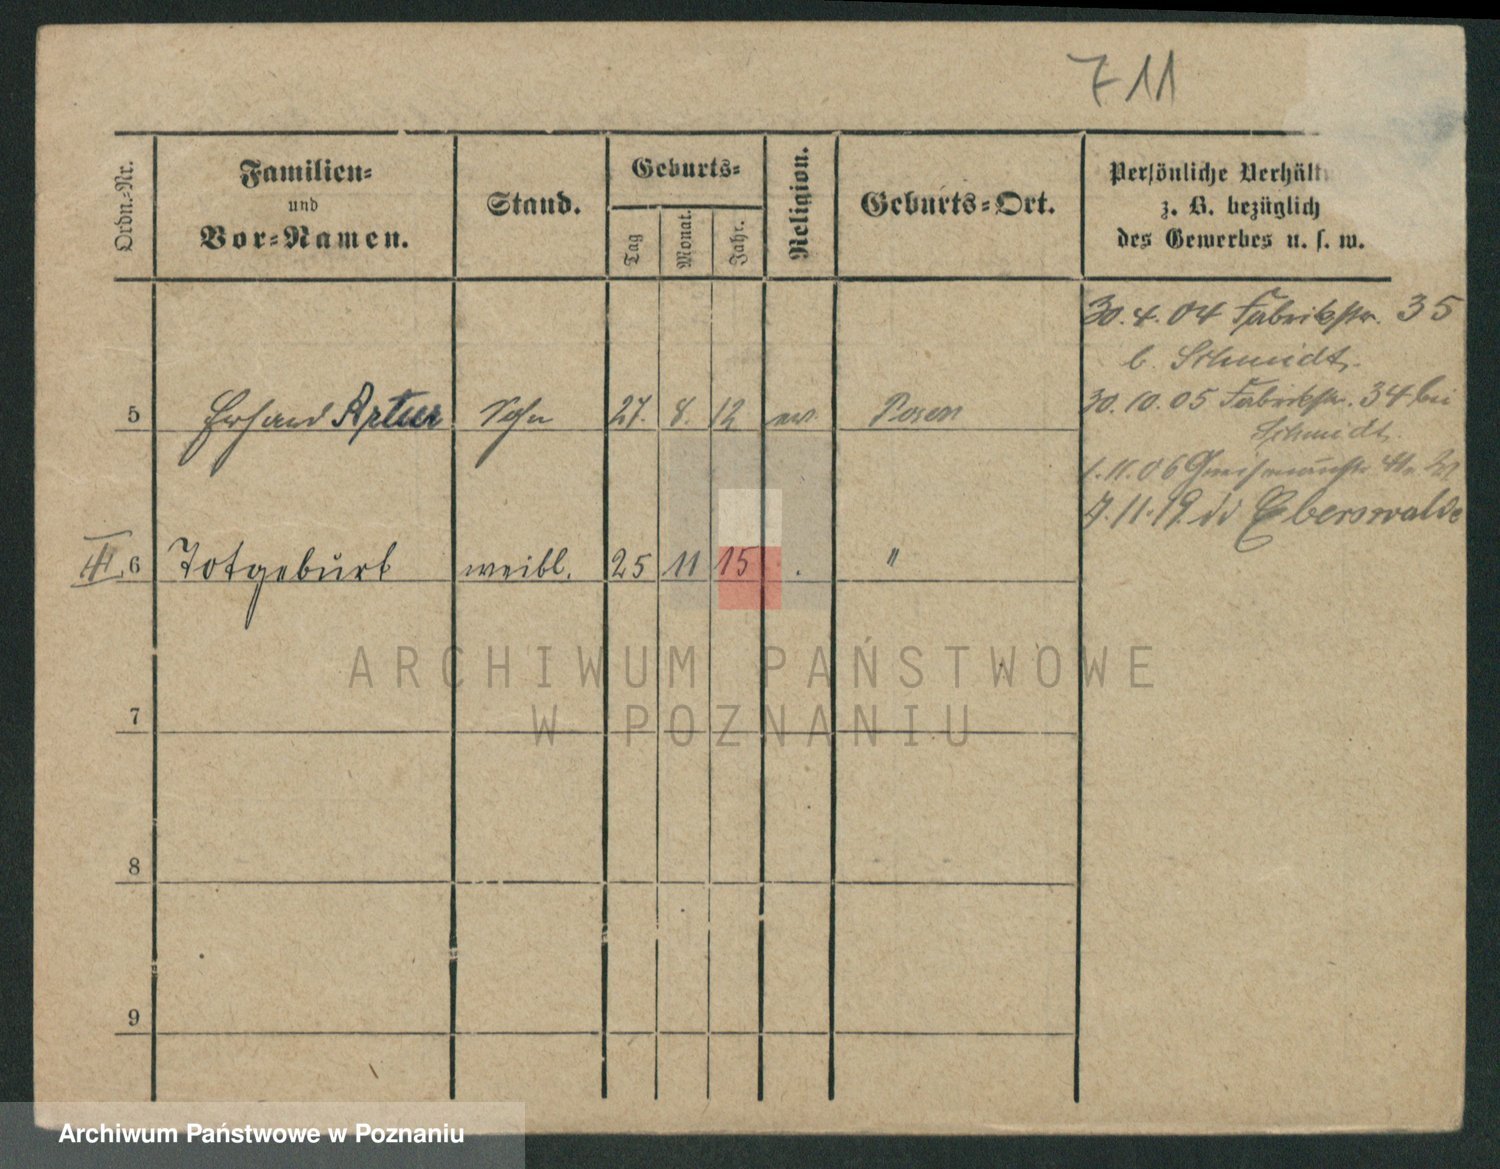 711
Ordn.=Nr.
Familien=
und
Vor=Namen.
Stand.
Geburts=
Tag
Monat.
Jahr.
Religion.
Geburts=Ort.
Persönliche Verhält
z. B. bezüglich
des Gewerbes u. s. w.
30.4.04 Fabrikstr. 35
b. Schmidt.
30.10.05 Fabrikstr. 34 bei
Schmidt.
1.11.06
7.11.19 in Eberswalde
5 Erhard Artur Sohn 27. 8. 12 ev. Posen
III 6 Totgeburt weibl. 25 11 15 . "
7
8
9
ARCHIWUM PAŃSTWOWE
W POZNANIU
Archiwum Państwowe w Poznaniu